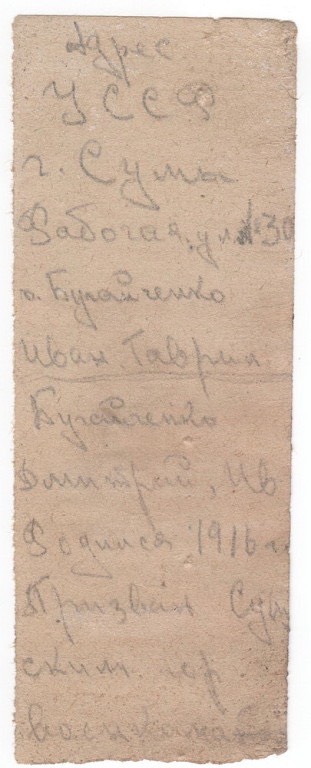 Адрес
УССР
г. Сумы
Рабочая, ул №30
о. Бугайченко
Иван. Гаврил.
Бугайченко
Дмитрий, Ив
Родился 1916 г.
Призван Сум
ским. гор